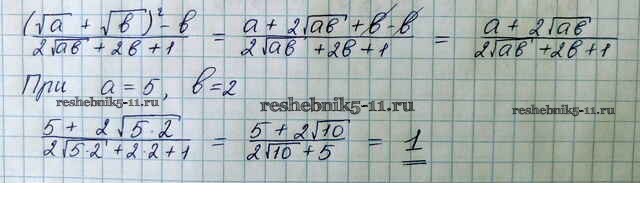 (√a + √b)² - b / 2√ab + 2b + 1 = a + 2√ab + b - b / 2√ab + 2b + 1 = a + 2√ab / 2√ab + 2b + 1
При a = 5, b = 2
reshebnik5-11.ru reshebnik5-11.ru reshebnik5-11.ru
5 + 2√5·2 / 2√5·2 + 2·2 + 1 = 5 + 2√10 / 2√10 + 5 = 1